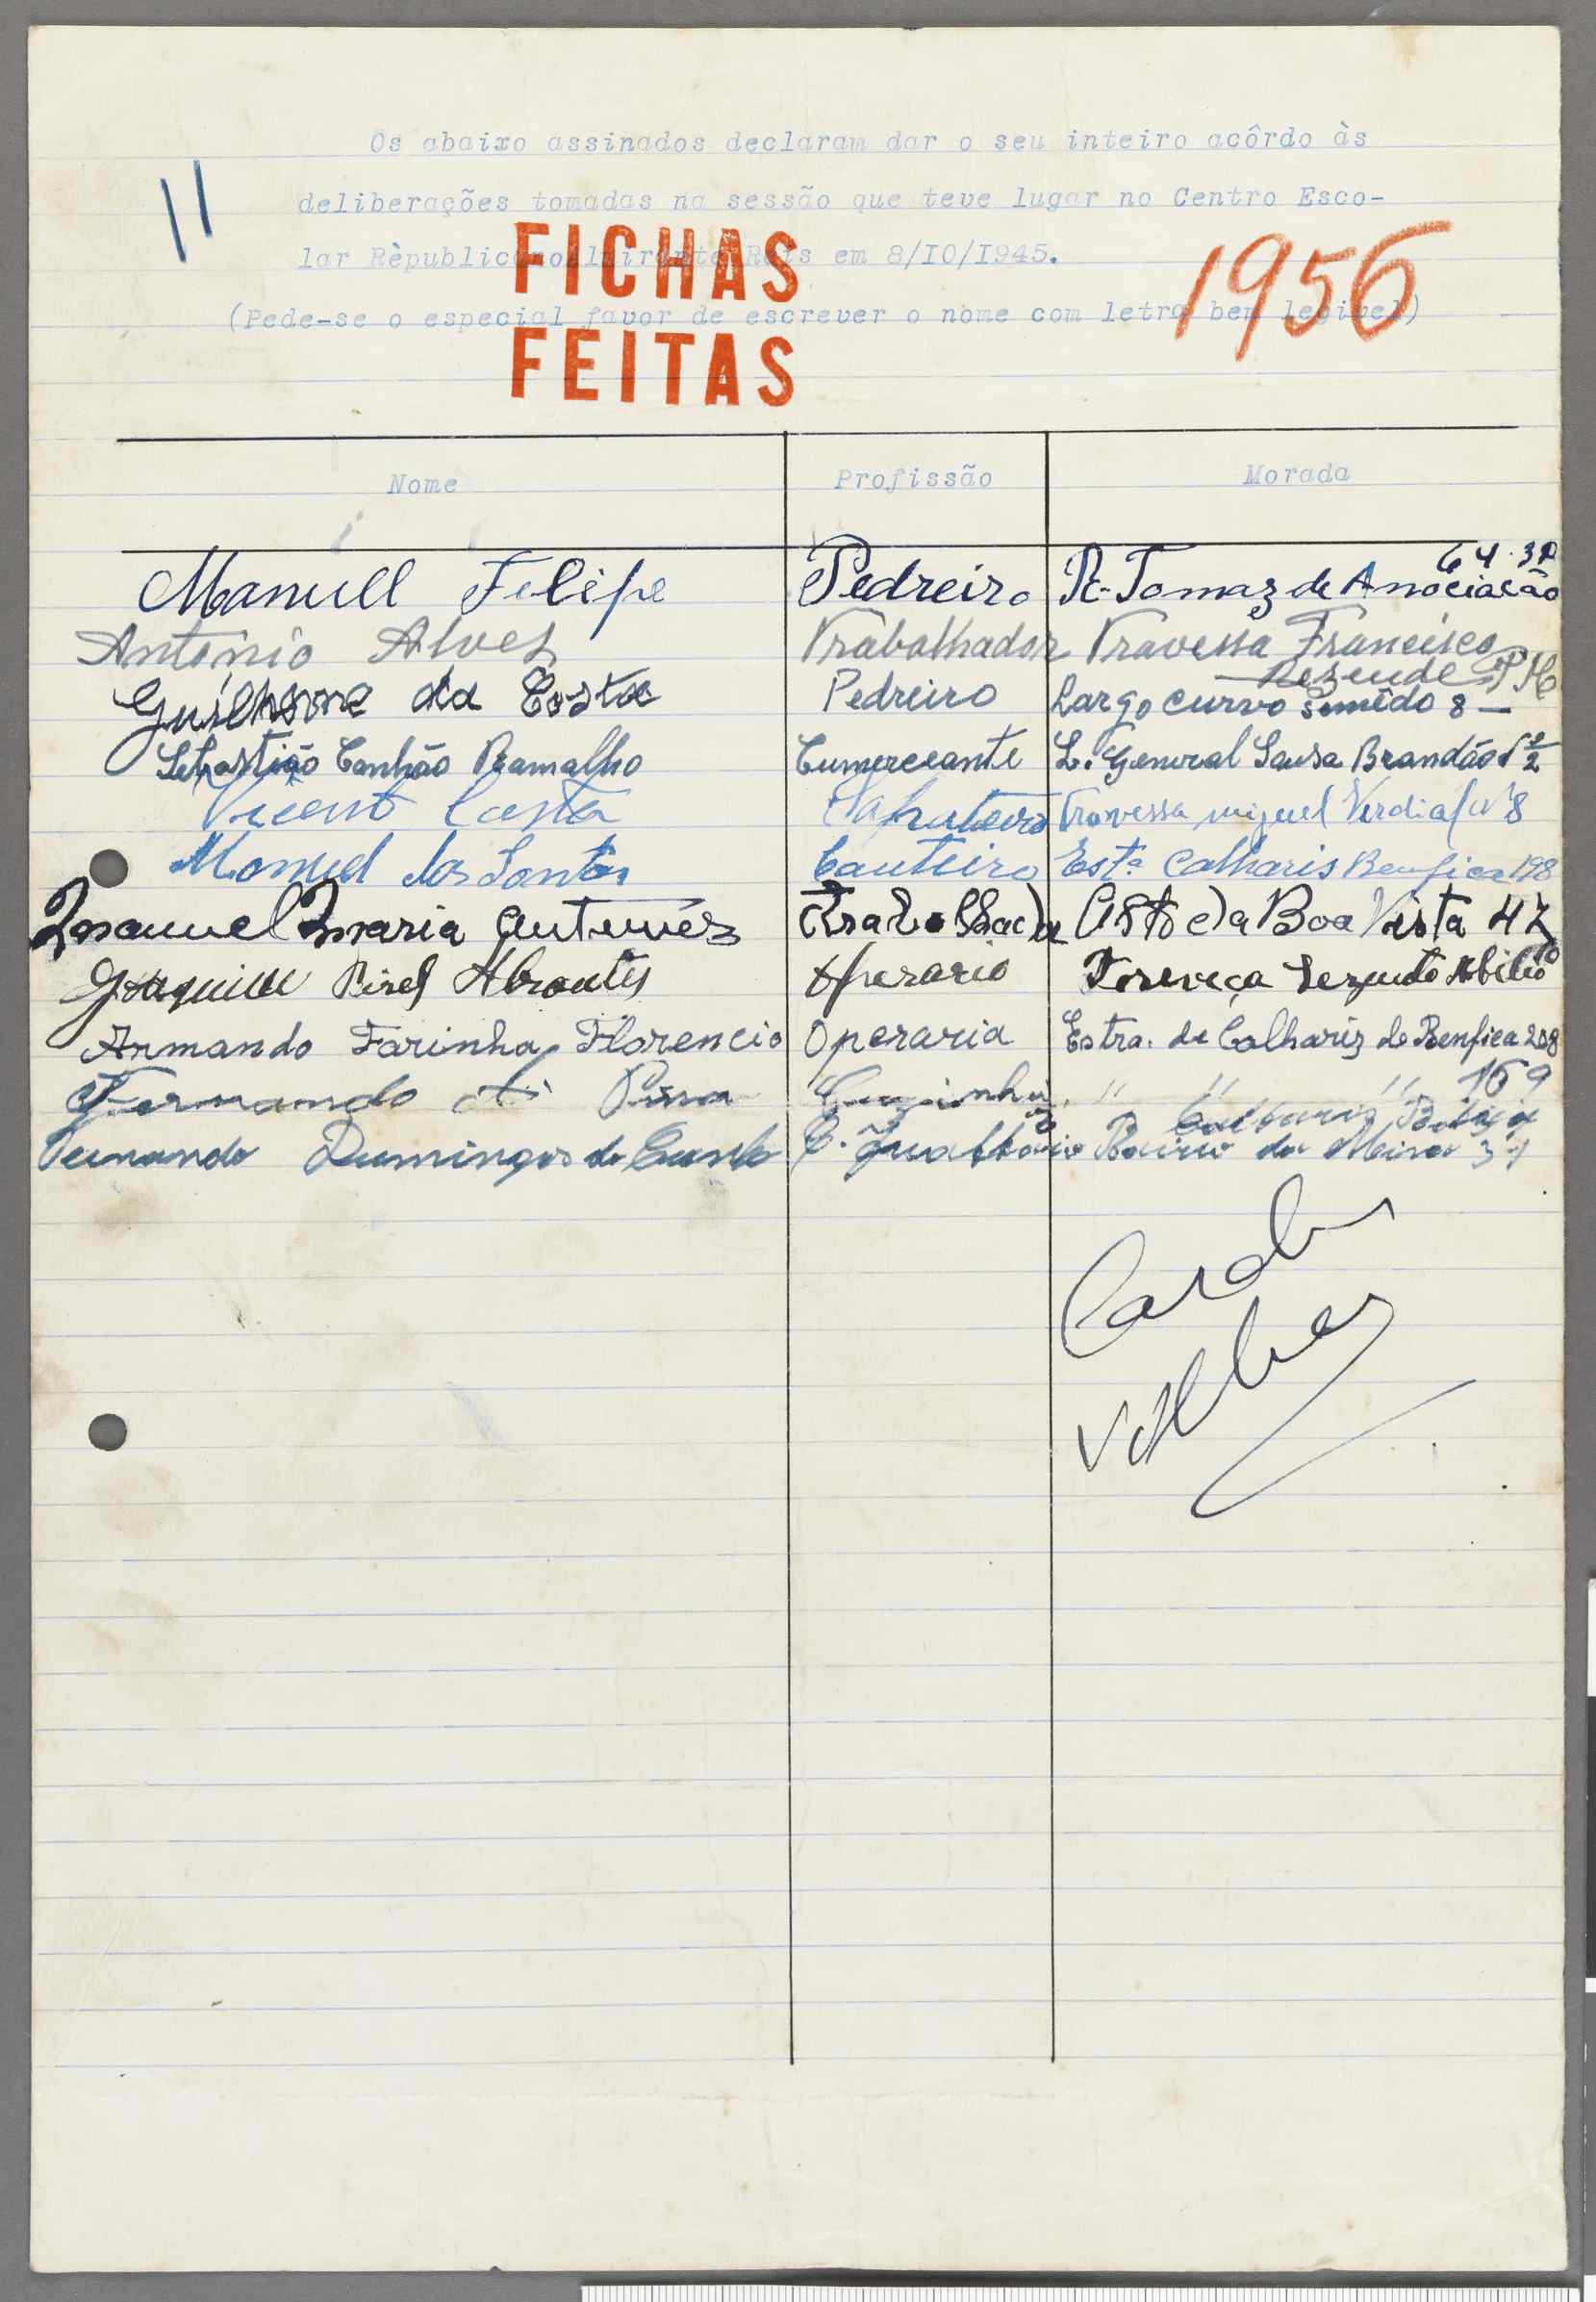 Os abaixo assinados declaram dar o seu inteiro acôrdo às
11
deliberações tomadas na sessão que teve lugar no Centro Esco-
lar Rèpublicano Almirante Reis em 8/IO/I945.
FICHAS
1956
(Pede-se o especial favor de escrever o nome com letra bem legivel)
FEITAS
Nome Profissão Morada
64 · 3º
Manuell Felipe Pedreiro R. Tomaz de Anociacão
António Alves Trabalhador Travessa Francisco
Rezende
Guilherme da Costa Pedreiro Largo Curvo Semêdo 8 —
Sebastião Canhão Ramalho Cumerceante L. General Sousa Brandão
Vicente Costa Travessa miguel Verdial Nº 8
Manuel dos Santos Canteiro Estª Calharis Benfica 198
Manuel Maria Antunes Alto da Boa Vista 47
Joaquim Pires Abrantes Operario Abilio
Armando Farinha Florencio Operario Estra. de Calhariz de Benfica 208
Fernando Pina " " " 169
Calhariz
Fernando Domingos da Cunha Bairro da Mina 31